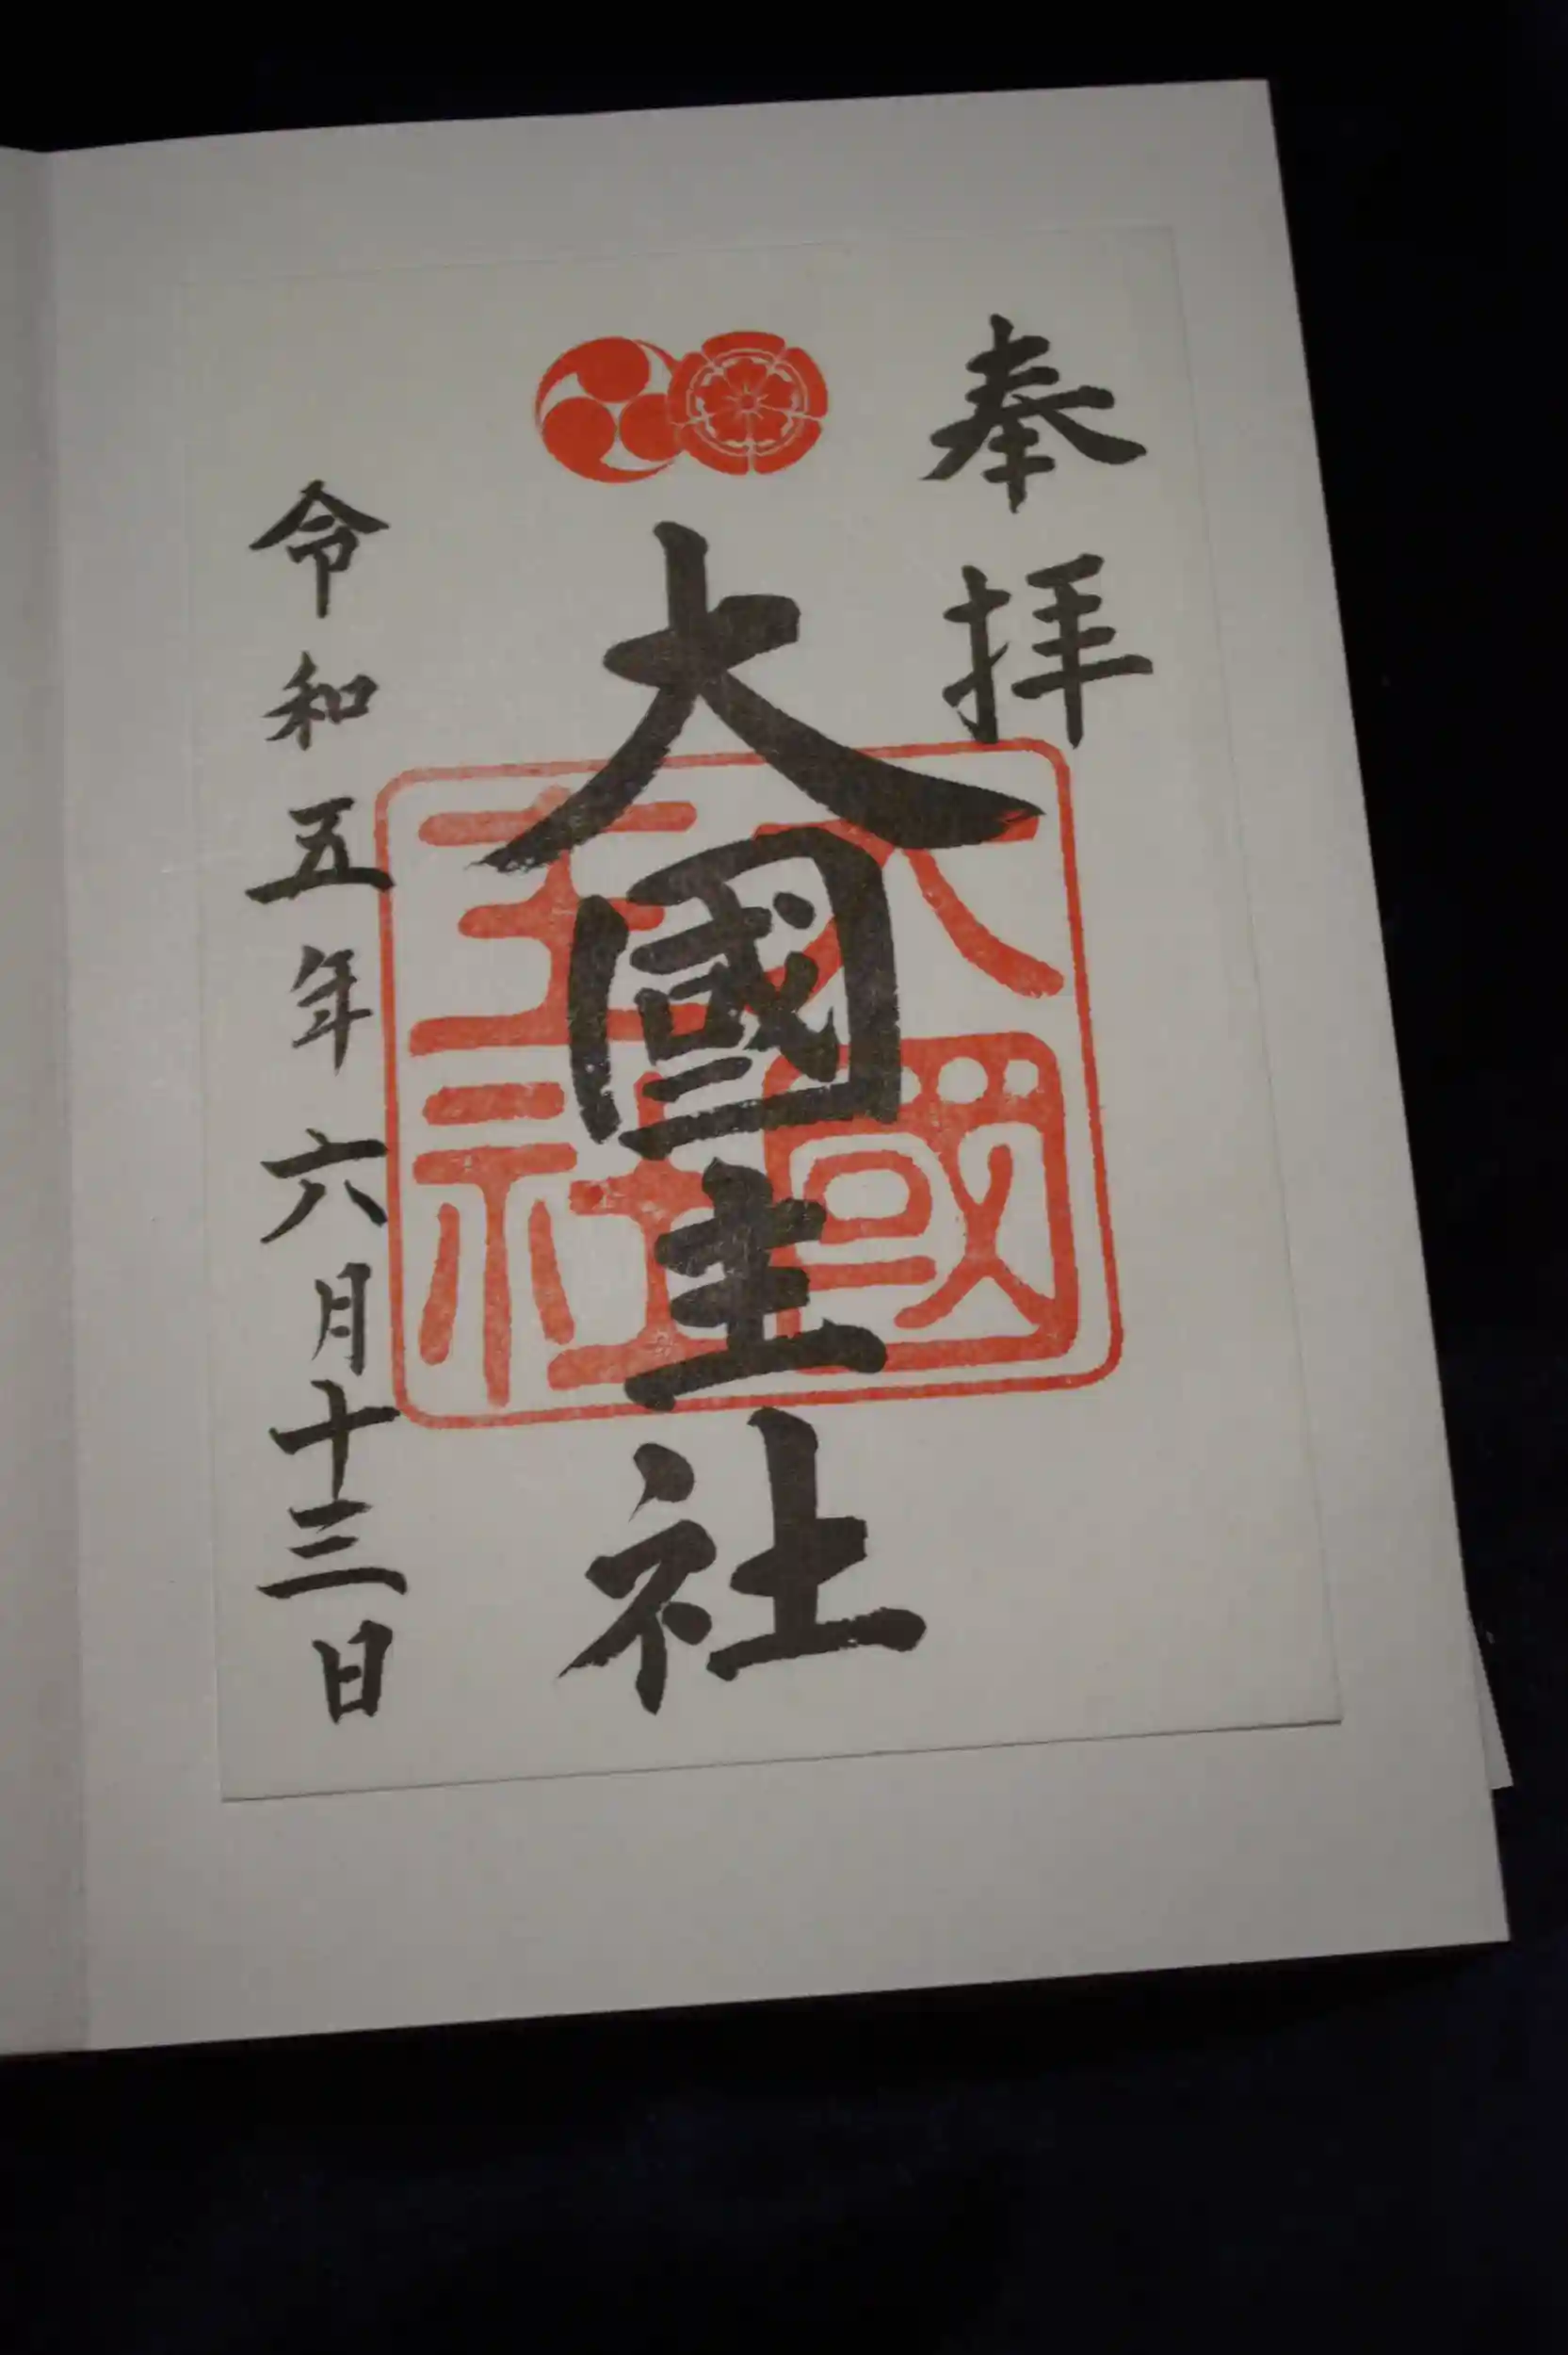 奉拝
大國主社
大國主社
令和五年六月十三日